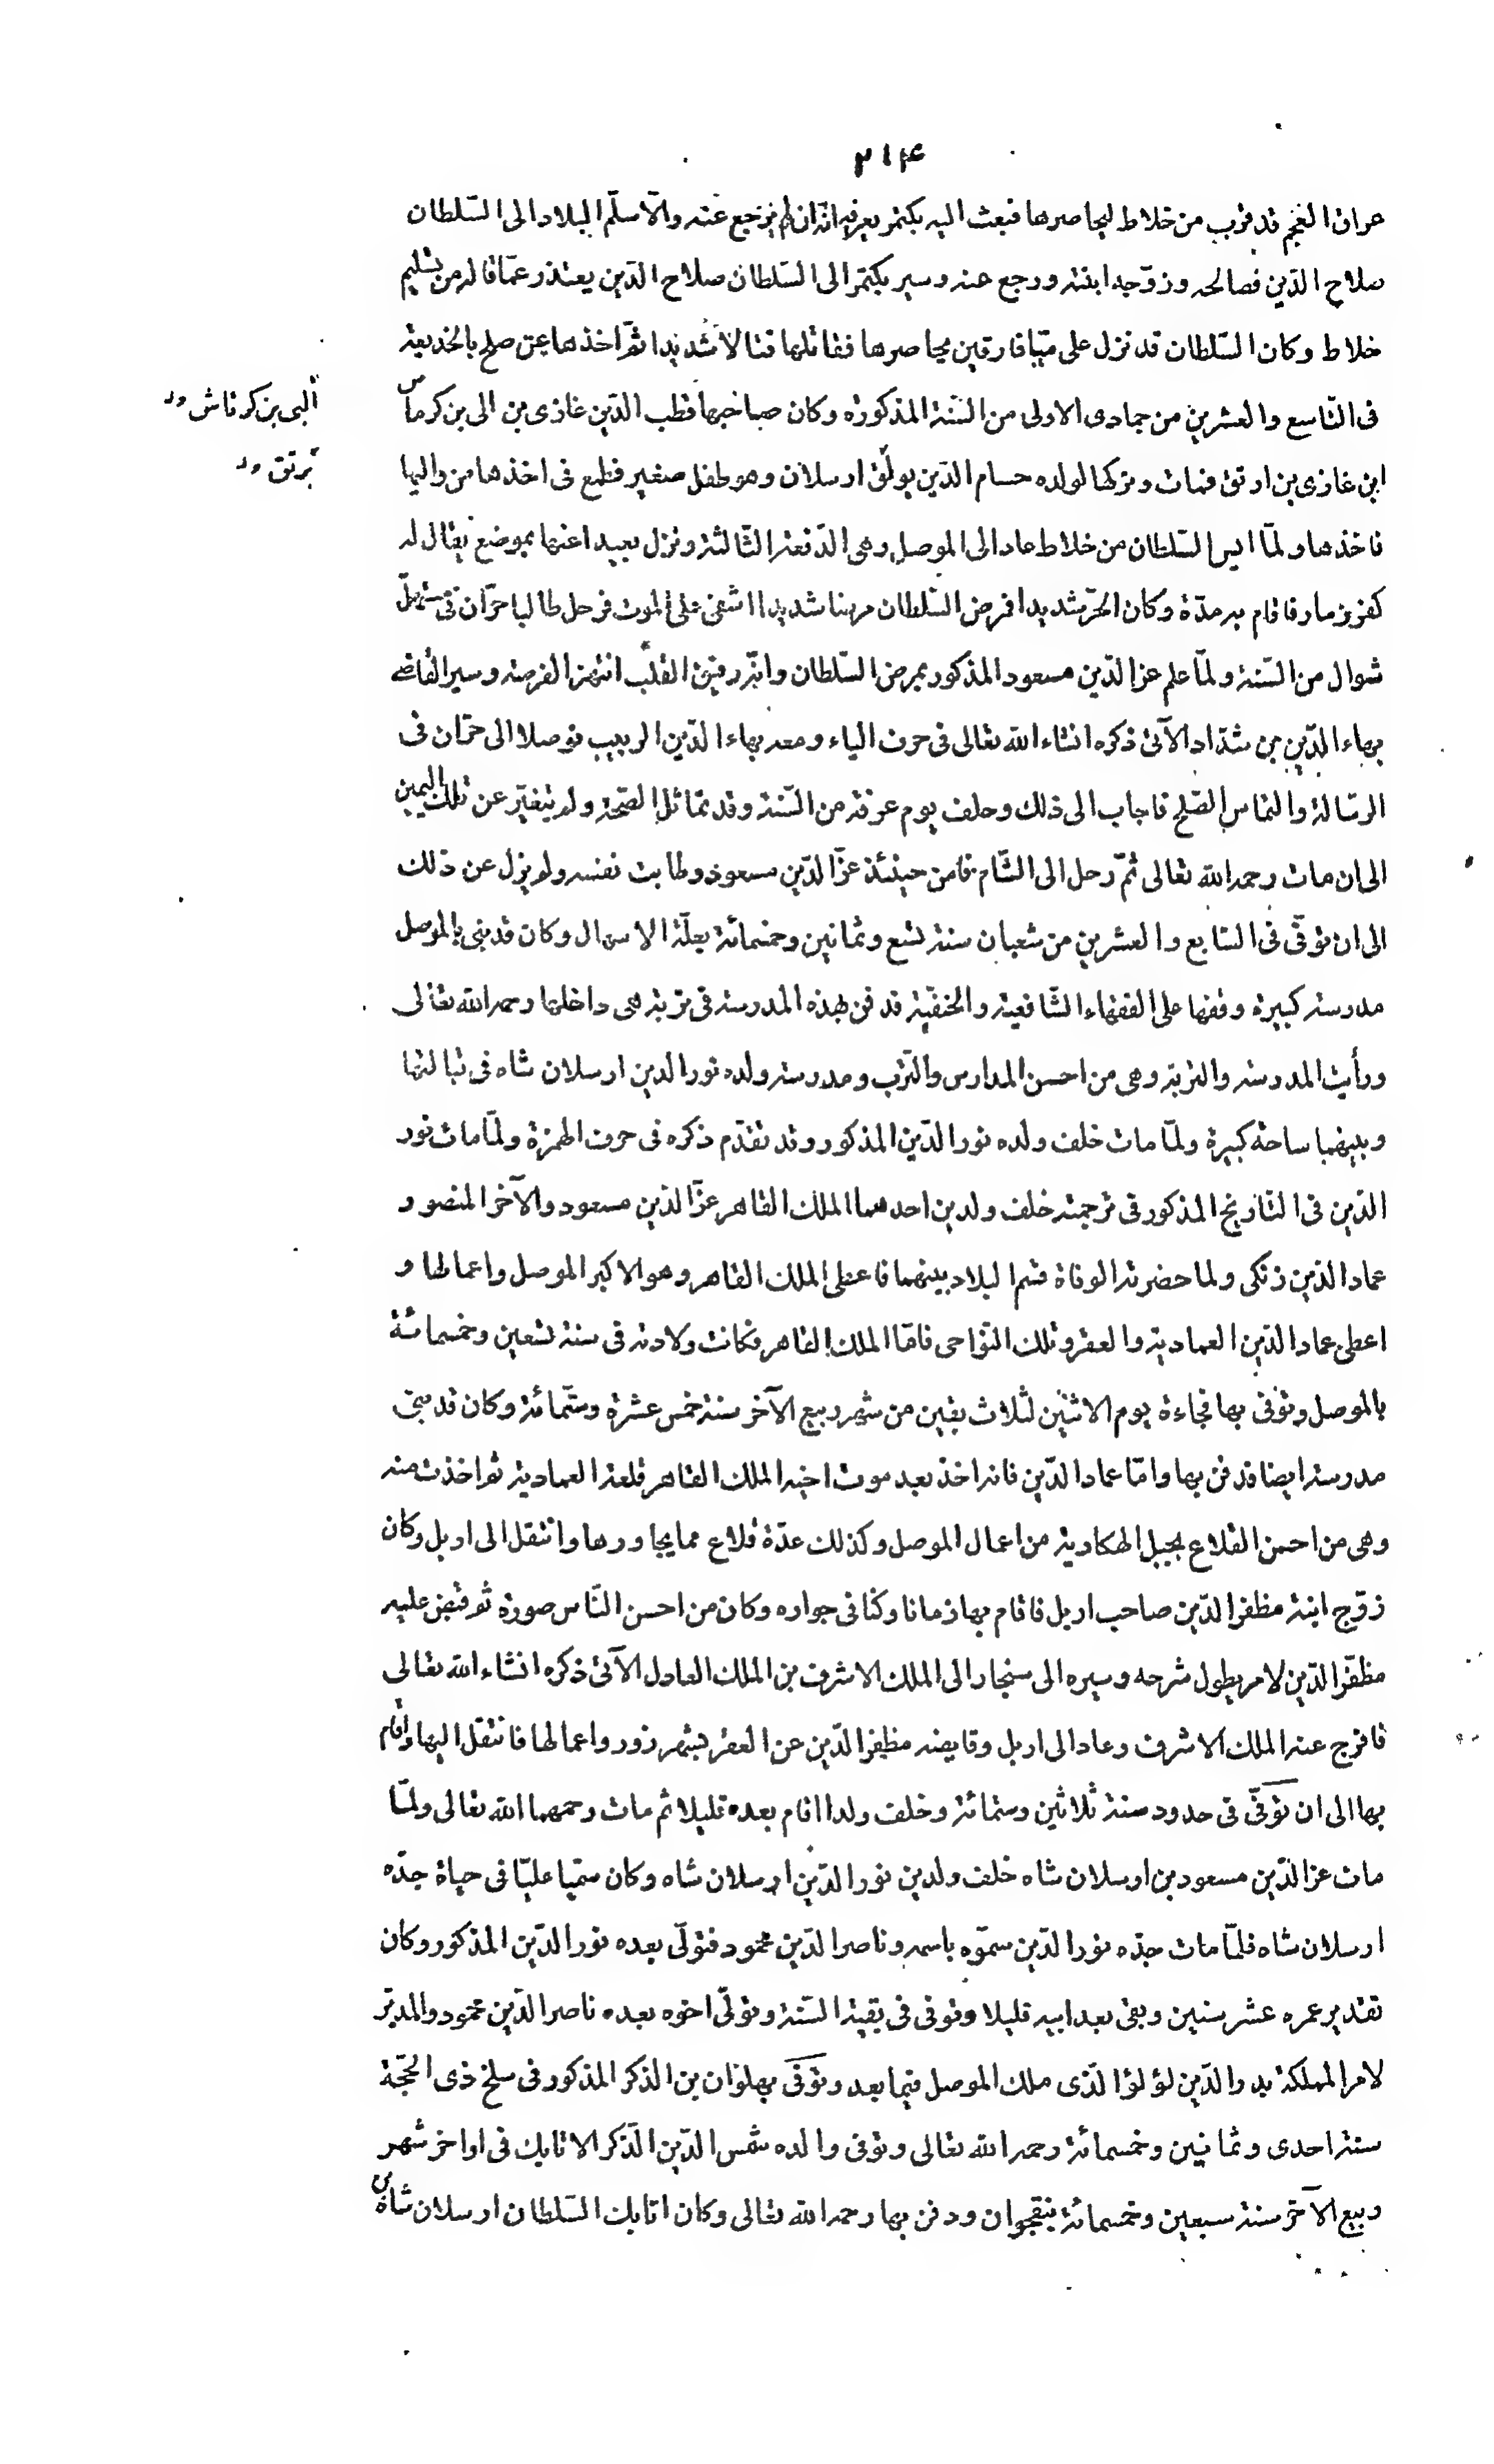 ٢١۴
عراق العجم قد قرب من خلاط ليحاصرها فبعث اليه بكتمر يعرفه انّه ان لم يرجع عنه والّا سلّم البلاد الى السّلطان
صلاح الدّين فصالحه وزوّجه ابنته ورجع عنه وسير بكتمر الى السّلطان صلاح الدّين يعتذر عمّا قاله من تسليم
خلاط وكان السّلطان قد نزل على ميّافارقين يحاصرها فقاتلها قتالا شديدا ثمّ اخذها عن صلح بالخديعة
فى التّاسع والعشرين من جمادى الاولى من السّنة المذكورة وكان صاحبها قطب الدّين غازى بن الى بن كرماس
البى بن كرتاش ور
ابن غازى بن ارتق فمات وتركها لولده حسام الدّين بولق ارسلان وهو طفل صغير فطمع فى اخذها من واليها
برتق ور
فاخذها ولمّا ايس السّلطان من خلاط عاد الى الموصل وهى الدّفعة الثّالثة ونزل بعيدا عنها بموضع يقال له
كفر زمار فاقام به مدّة وكان الحرّ شديدا فمرض السّلطان مرضا شديدا اشفى على الموت فرحل طالبا حرّان فى مستهلّ
شوال من السّنة ولمّا علم عز الدّين مسعود المذكور بمرض السّلطان وانّه رقيق القلب انتهز الفرصة وسير القاضى
بهاء الدّين بن شدّاد الآتى ذكره انشاء الله تعالى فى حرف الياء ومعه بهاء الدّين الربيب فوصلا الى حرّان فى
الرّسالة والتماس الصّلح فاجاب الى ذلك وحلف يوم عرفة من السّنة وقد تماثل الصّحة ولم يتغيّر عن تلك اليمين
الى ان مات رحمه الله تعالى ثمّ رحل الى الشّام فامن حينئذ عزّ الدّين مسعود وطابت نفسه ولم يزل عن ذلك
الى ان توفّى فى السّابع والعشرين من شعبان سنة تسع وثمانين وخمسمائة بعلّة الاسهال وكان قد بنى بالموصل
مدرسة كبيرة وقفها على الفقهاء الشّافعية والحنفيّة فدفن بهذه المدرسة فى تربة هى داخلها رحمه الله تعالى
ورأيت المدرسة والتربة وهى من احسن المدارس والتّرب ومدرسة ولده نور الدين ارسلان شاه فى قبالتها
وبينهما ساحة كبيرة ولمّا مات خلف ولده نور الدّين المذكور وقد تقدّم ذكره فى حرف الهمزة ولمّا مات نور
الدّين فى التّاريخ المذكور فى ترجمته خلف ولدين احدهما الملك القاهر عزّ الدّين مسعود والآخر المنصور
عماد الدّين زنكى ولما حضرته الوفاة قسم البلاد بينهما فاعطى الملك القاهر وهو الاكبر الموصل واعمالها و
اعطى عماد الدّين العمادية والعقر وتلك النّواحى فامّا الملك القاهر فكانت ولادته فى سنة تسعين وخمسمائة
بالموصل وتوفى بها فجاءة يوم الاثنين لثلاث بقين من شهر ربيع الآخر سنة خمس عشرة وستّمائة وكان قد بنى
مدرسة ايضا فدفن بها وامّا عماد الدّين فانه اخذ بعد موت اخيه الملك القاهر قلعة العمادية ثم اخذت منه
وهى من احسن القلاع بجبل الهكارية من اعمال الموصل وكذلك عدّة قلاع مما يجاورها وانتقل الى اربل وكان
زوّج ابنة مظفر الدّين صاحب اربل فاقام بها زمانا وكنا فى جواره وكان من احسن النّاس صورة ثم قبض عليه
مظفّر الدّين لامر يطول شرحه وسيره الى سنجار الى الملك الاشرف بن الملك العادل الآتى ذكره انشاء الله تعالى
فافرج عنه الملك الاشرف وعاد الى اربل وقايضه مظفر الدّين عن العقر بشهر زور واعمالها فانتقل اليها واقام
بها الى ان توفّى فى حدود سنة ثلاثين وستمائة وخلف ولدا اقام بعده قليلا ثم مات رحمهما الله تعالى ولمّا
مات عز الدّين مسعود بن ارسلان شاه خلف ولدين نور الدّين ارسلان شاه وكان سمّيا عليّا فى حياة جدّه
ارسلان شاه فلمّا مات جدّه نور الدّين سموّه باسمه وناصر الدّين محمود فتولّى بعده نور الدّين المذكور وكان
تقدير عمره عشر سنين وبقى بعد ابيه قليلا وتوفى فى بقية السّنة وتولّى اخوه بعده ناصر الدّين محمود والمدبّر
لامر المملكة بدر الدّين لؤلؤ الذى ملك الموصل فيما بعد وتوفى بهلوان بن الدكز المذكور فى سلخ ذى الحجّة
سنة احدى وثمانين وخمسمائة رحمه الله تعالى وتوفى والده شمس الدّين الدكز الاتابك فى اواخر شهر
ربيع الآخر سنة سبعين وخمسمائة بنقجوان ودفن بها رحمه الله تعالى وكان اتابك السّلطان ارسلان شاه